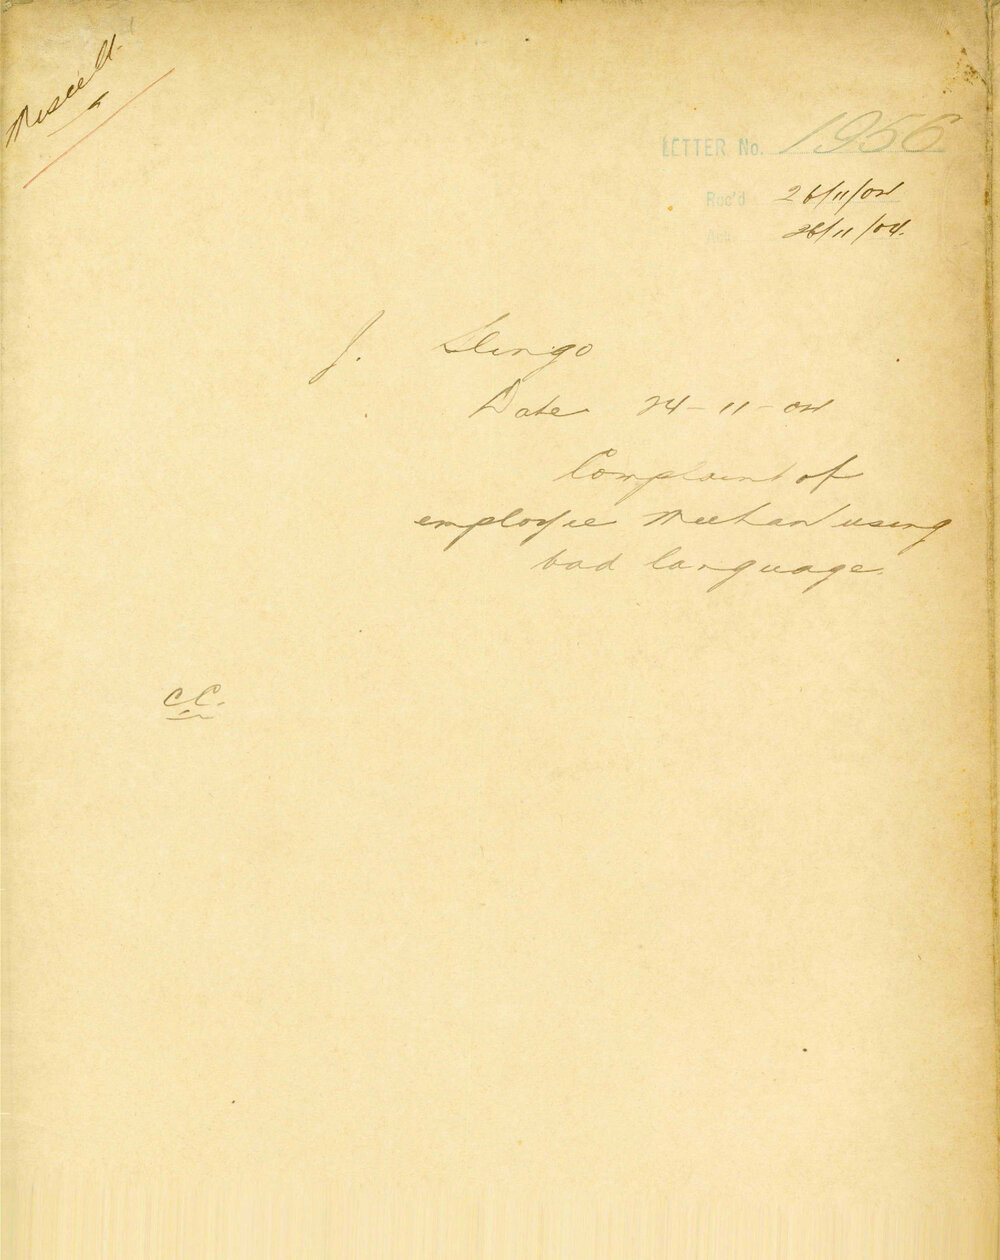 Miscell
LETTER No. 1956
Rec'd 26/11/04
Ack 26/11/04.
J. Slingo
Date 24-11-04
Complaint of
employee Meehan using
bad language.
C.C.